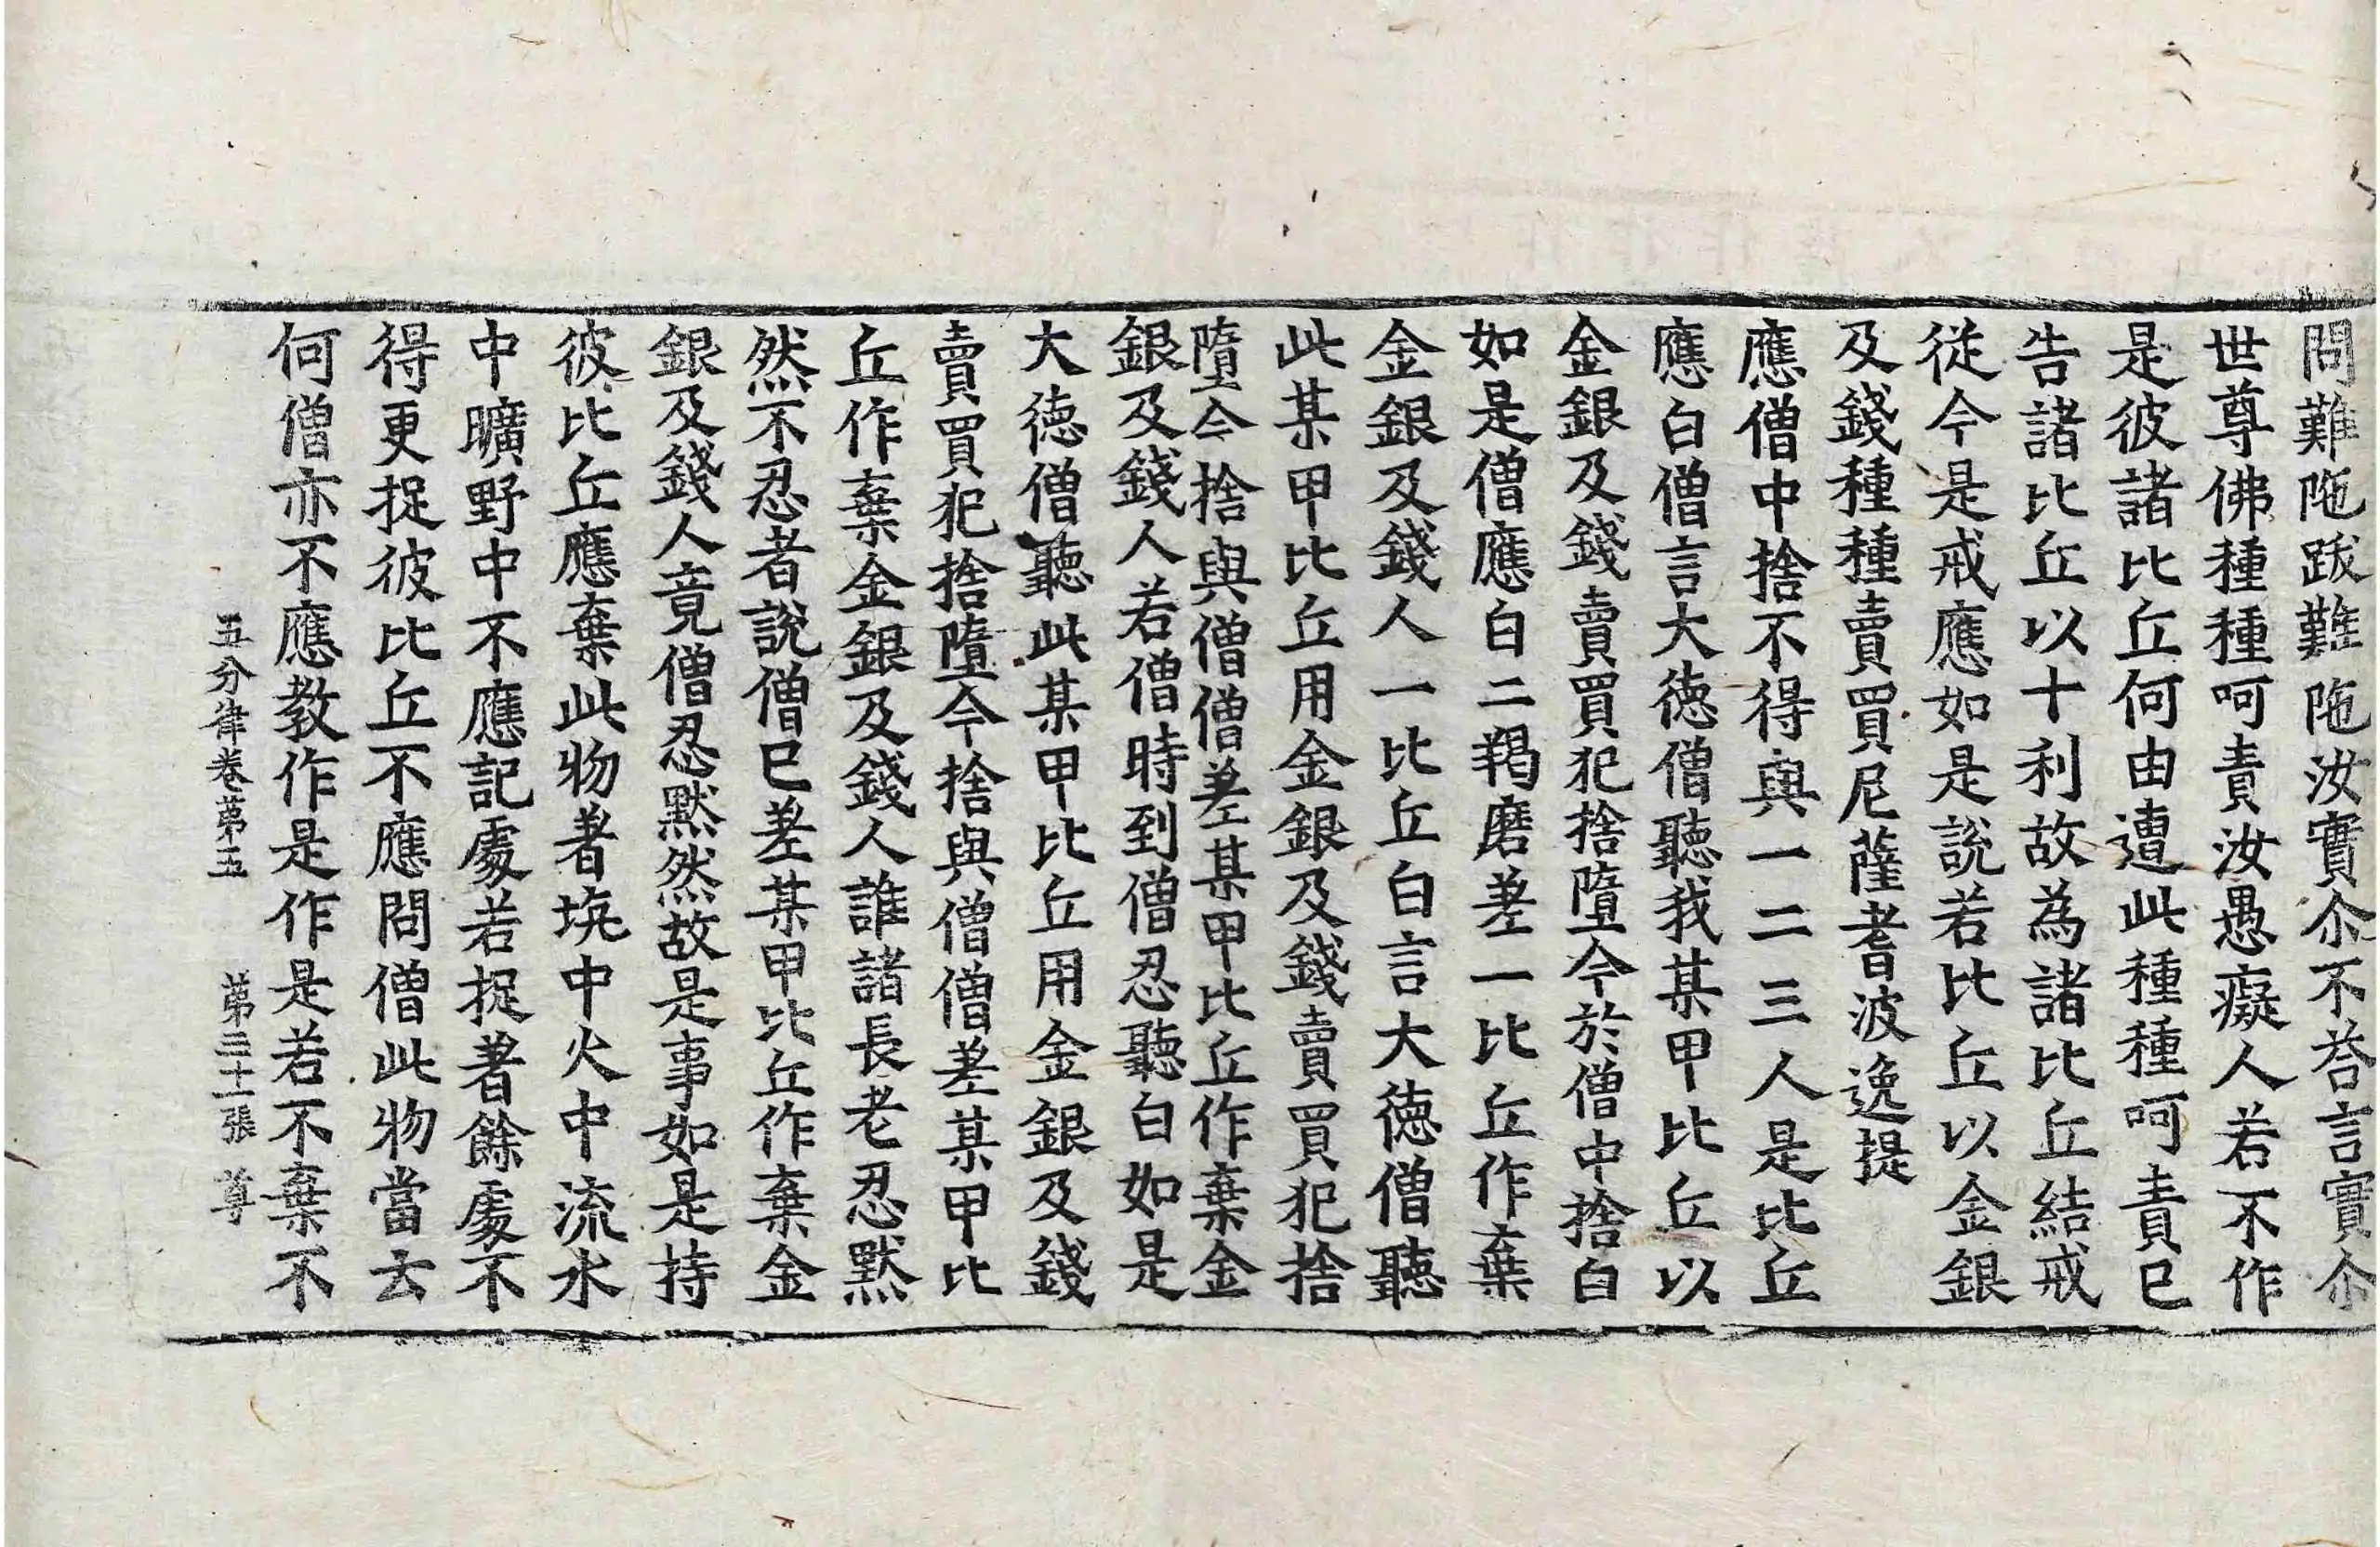 問難陁跋難陁汝實尒不荅言實尒
世尊佛種種呵責汝愚癡人若不作
是彼諸比丘何由遭此種種呵責已
告諸比丘以十利故為諸比丘結戒
從今是戒應如是說若比丘以金銀
及錢種種賣買尼薩耆波逸提
應僧中捨不得與一二三人是比丘
應白僧言大德僧聽我某甲比丘以
金銀及錢賣買犯捨墮今於僧中捨白
如是僧應白二羯磨差一比丘作棄
金銀及錢人一比丘白言大德僧聽
此某甲比丘用金銀及錢賣買犯捨
墮今捨與僧僧差某甲比丘作棄金
銀及錢人若僧時到僧忍聽白如是
大德僧聽此某甲比丘用金銀及錢
賣買犯捨墮今捨與僧僧差某甲比
丘作棄金銀及錢人誰諸長老忍默
然不忍者說僧已差某甲比丘作棄金
銀及錢人竟僧忍默然故是事如是持
彼比丘應棄此物著坑中火中流水
中曠野中不應記處若捉著餘處不
得更捉彼比丘不應問僧此物當去
何僧亦不應教作是作是若不棄不
五分律卷第五 第二十一張 尊